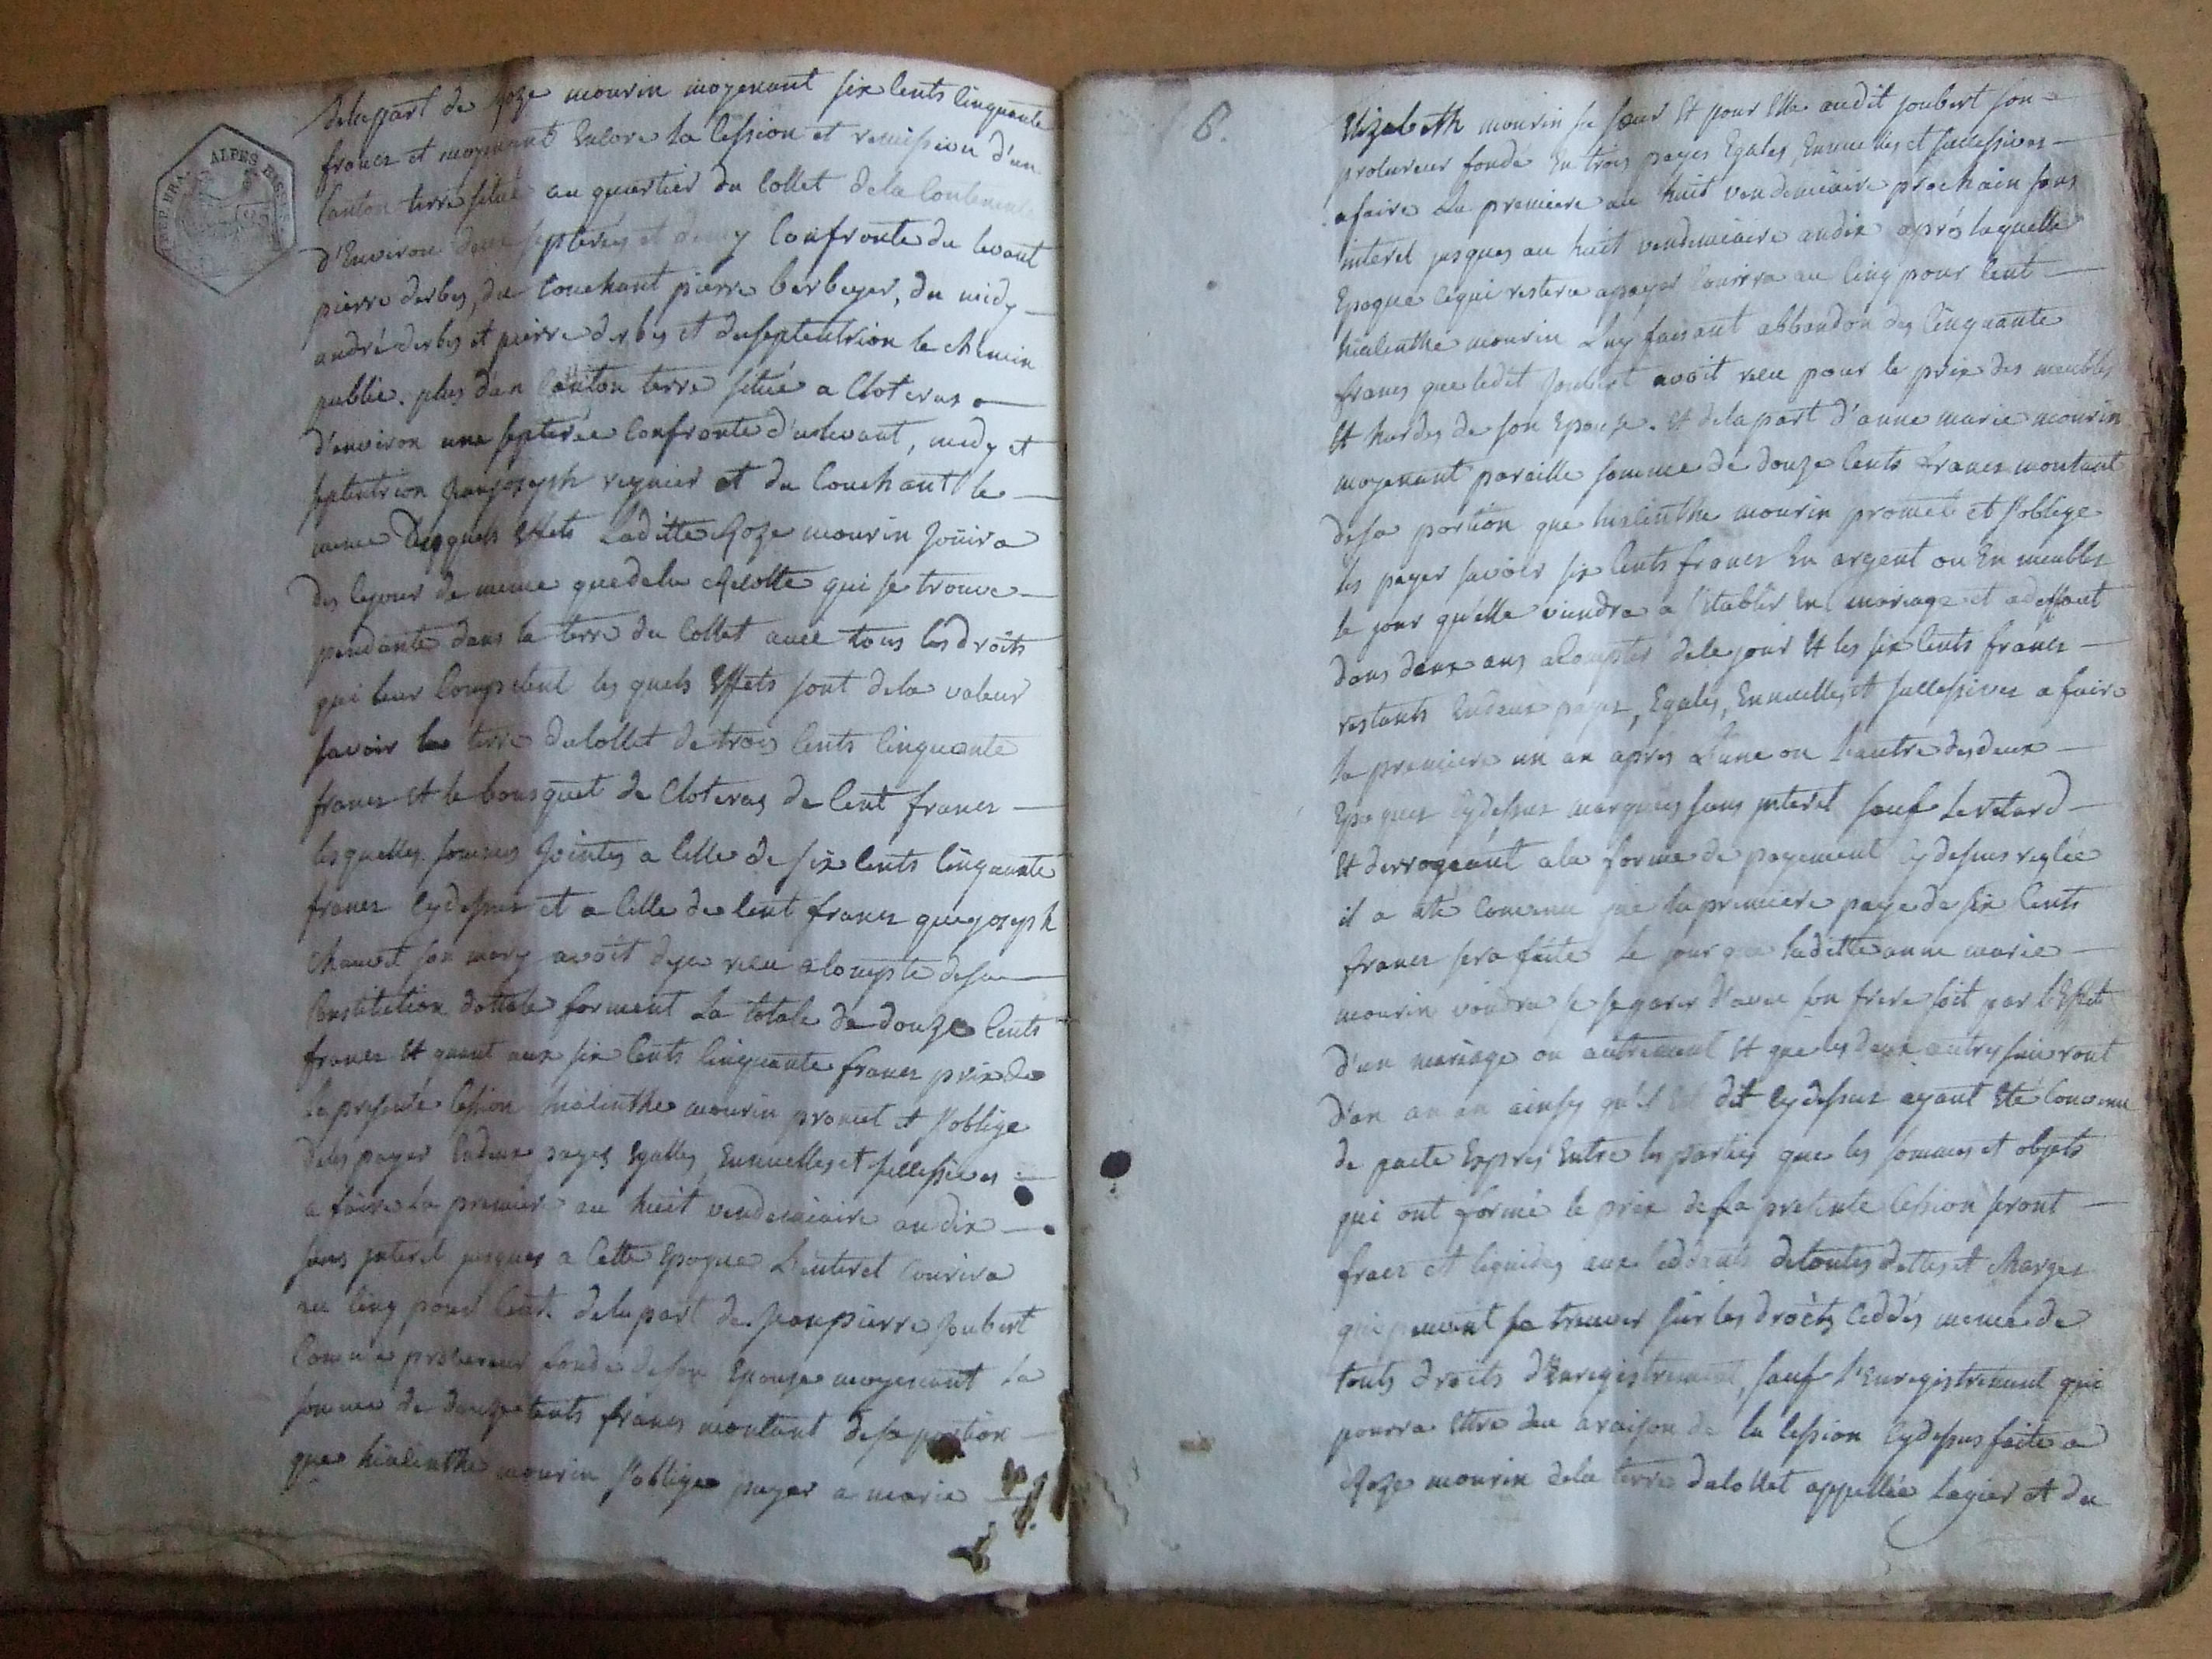 delapart de Roze mourin moyenant six Cents Cinquante
francs et moyenant Encore la Cession et remission d'un
Canton terre situé au quartier du Collet dela Contenence
d'Environ deux septerées et demy Confronte du levant
pierre derbes, du Couchant pierre berbeyer, du midy
andré derbes et pierre derbes et du septentrion le chemin
public. plus d'un Canton terre située a Cloteras
d'environ une septerée Confronte d'u levant, midy et
septentrion Jeanjoseph reynier et du Couchant le
meme Desquels Effets Laditte Roze mourin Jouira
des lejour de meme que dela Recolte qui se trouve
pendante dans la terre du Collet avec tous les droits
qui leur Competent les quels Effets sont dela valeur
savoir la terre ducollet de trois Cents Cinquante
francs Et le bousquet de Cloteras de Cent francs
lesquelles sommes Jointes a Celle de six Cents Cinquante
francs Cydessus et a Celle de Cent francs que joseph
son mary avoit deja recu acompte desa
Constitution dottale forment La totale de douze Cents
francs Et quant aux six Cents Cinquante francs prix de
la presente Cession hiacinthe mourin promet et s'oblige
deles payer Endeux payes Egalles, Ennuelles et successives
a faire la premiere au huit vendemiaire an dix
sans interet jusques a Cette Epoque L'interet Courira
au Cinq pour Cent. delapart de Jeanpierre Joubert
Comme procureur fondé deson Epouse moyenant la
somme de douze Cents francs montant desa portion
que hiacinthe mourin s'oblige payer a marie
ALPES BASSES
6.
Elizabeth mourin sa sœur Et pour Elle audit joubert son
procureur fondé En trois payes Egales, Ennuelles et successives
a faire La premiere au huit vendemiaire prochain sans
interet jusques au huit vendemiaire andix après laquelle
Epoque cequi restera apayer Courrira au Cinq pour Cent
hiacinthe mourin Luy faisant abbandon des Cinquante
francs que ledit Joubert avoit recu pour le prix des meubles
Et hardes de son Epouse. Et delapart d'anne marie mourin
moyenant pareille somme de douze Cents francs montant
desa portion que hiacinthe mourin promet et s'oblige
les payer savoir six Cents francs En argent ou En meubles
le jour qu'elle viendra a s'etablir En mariage et adeffaut
dans deux ans aCompter dece jour Et les six Cents francs
restants Endeux payes, Egales, Ennuelles et successives a faire
la premiere un an apres L'une ou L'autre desdeux
Epoques Cydessus marquées sans interet sauf Le retard
Et derrogeant ala forme de payement Cydessus reglée
il a été Convenu que la premiere paye de six Cents
francs sera faite le jour que laditte anne marie
mourin voudra se separer d'avec son frere soit par l'Effet
d'un mariage ou autrement Et que les deux autres suivront
d'an an an ainsy qu'il Est dit Cydessus ayant Eté Convenu
de pacte Exprès Entre les parties que les sommes et objets
qui ont formé le prix de la presente Cession seront
francs et liquides aux Ceddants detoutes dettes et charges
qui peuvent se trouver sur les droits Ceddés meme de
touts droits d'Enregistrement, sauf l'Enregistrement qui
pourra Etre deu araison de la Cession Cydessus faite a
Roze mourin dela terre ducollet appellée Lagier et du